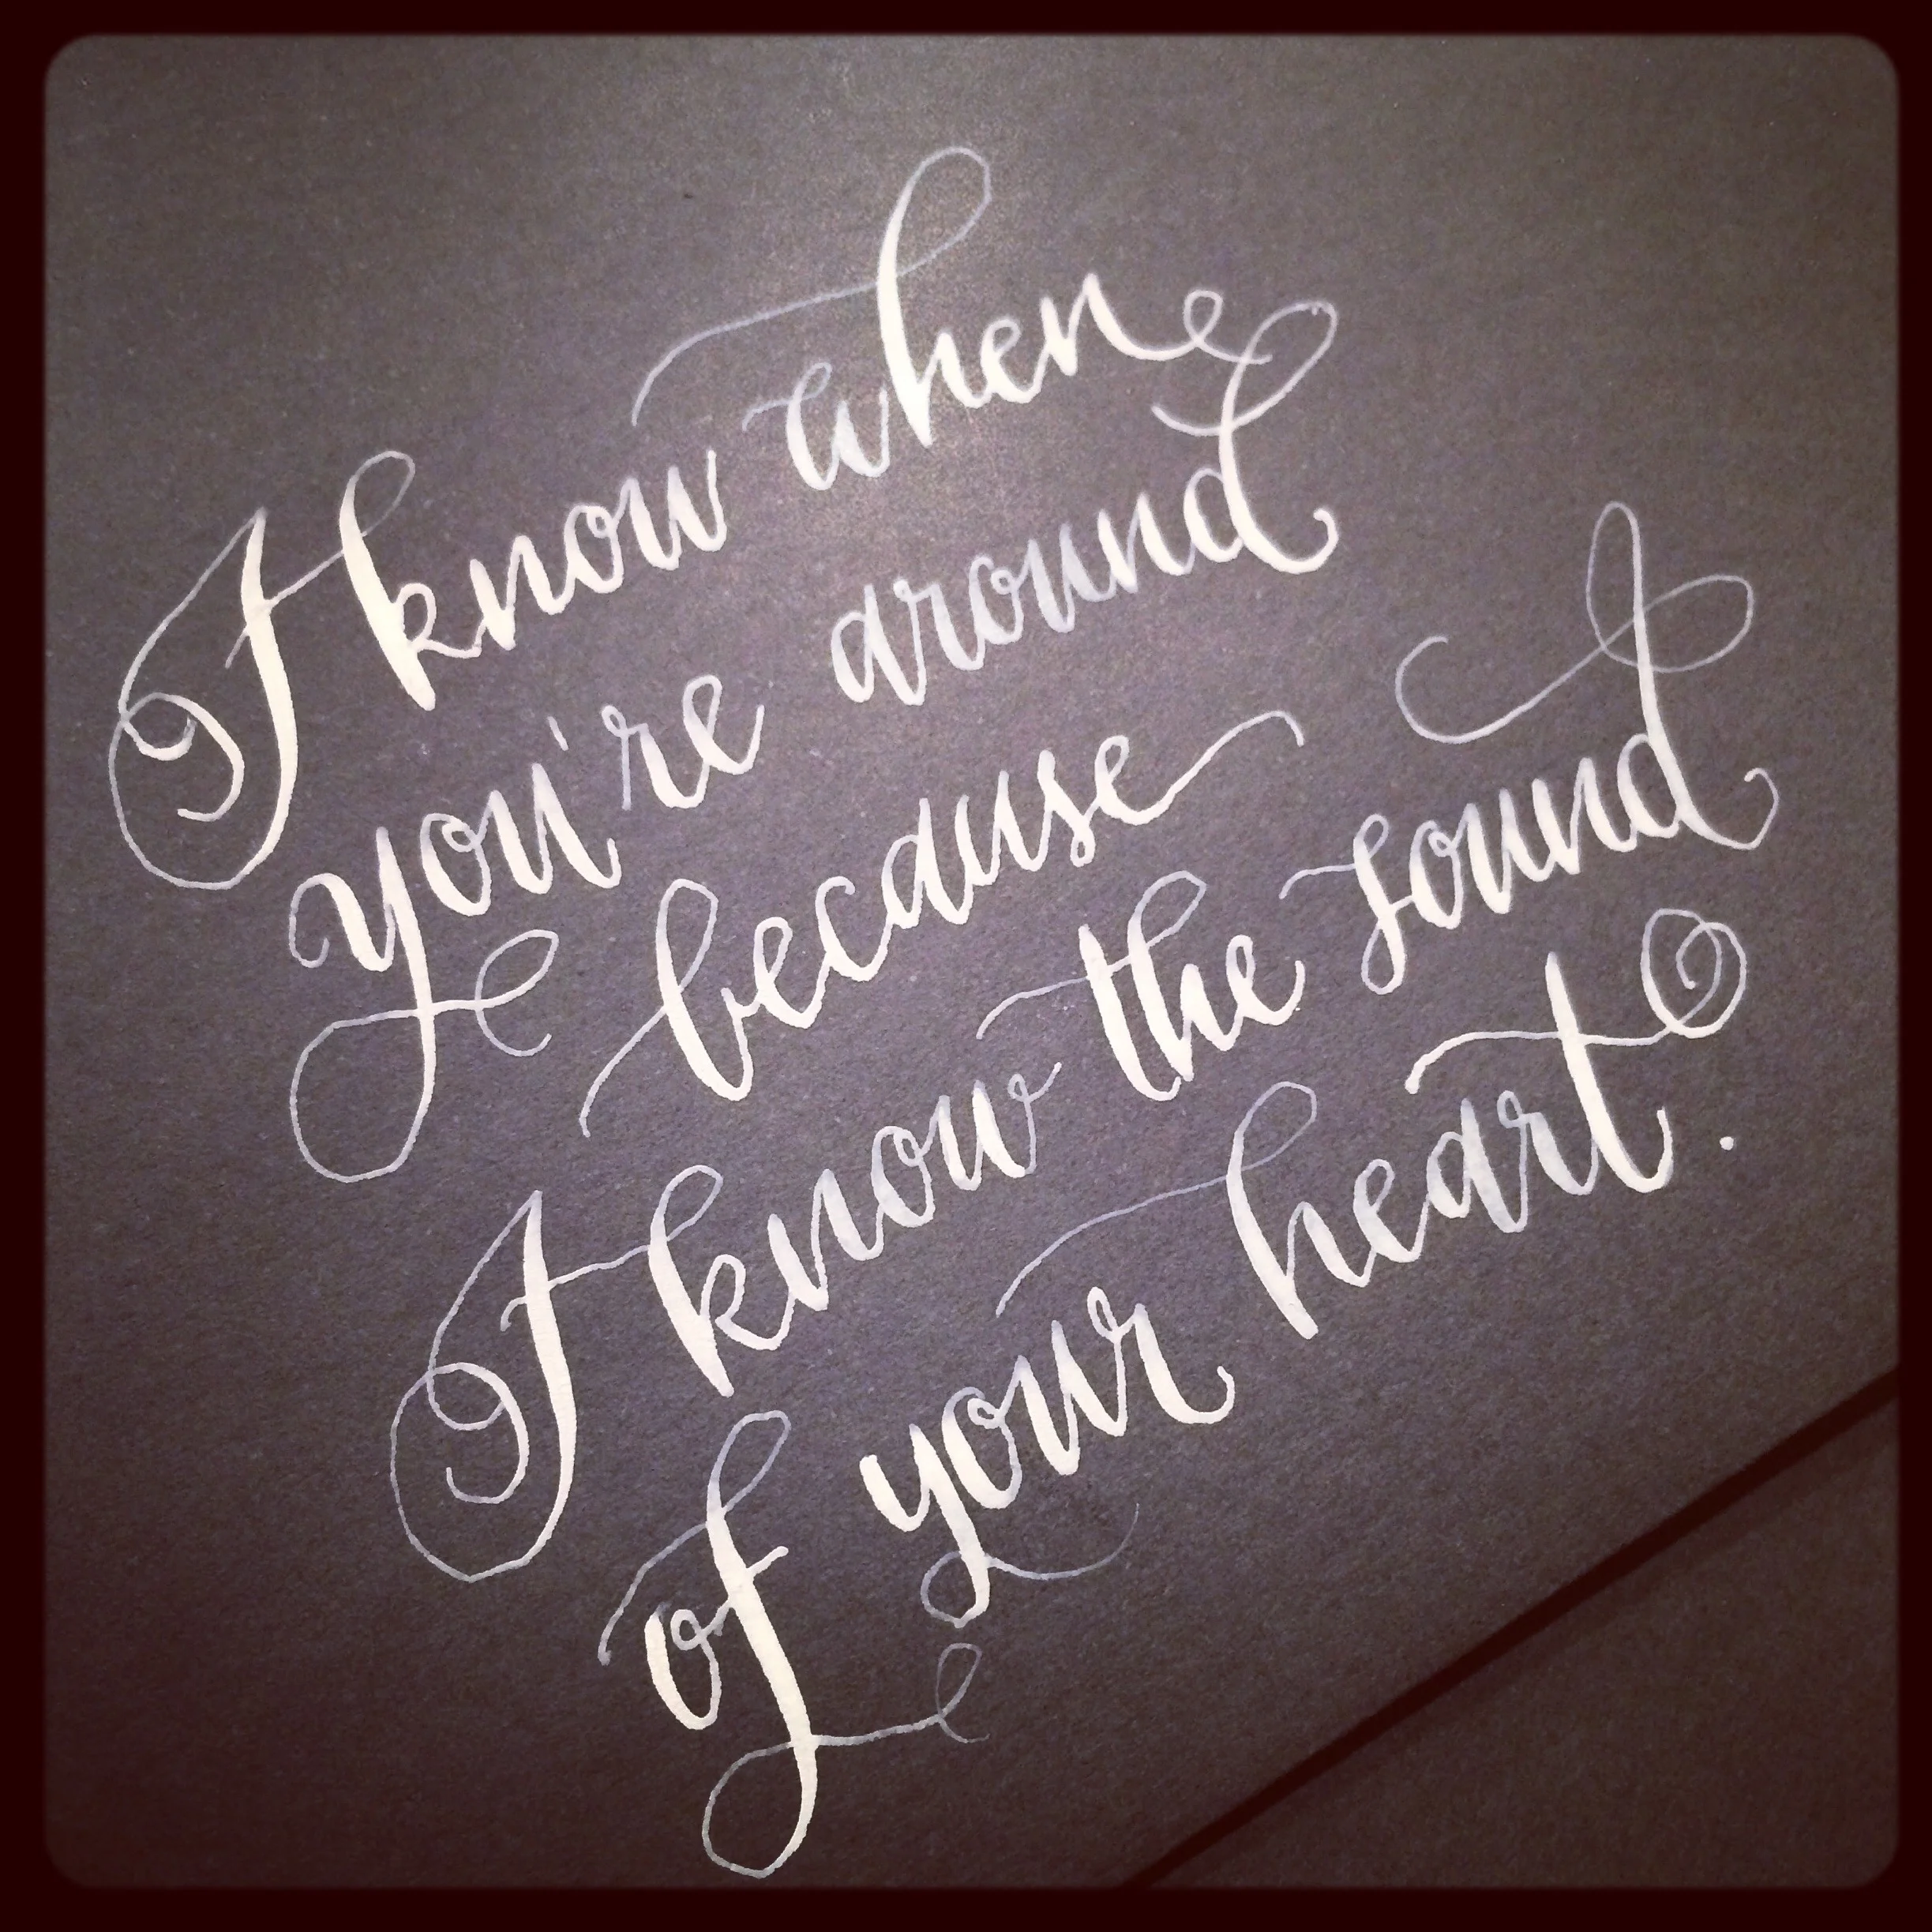 I know when
you're around
because
I know the sound
of your heart.